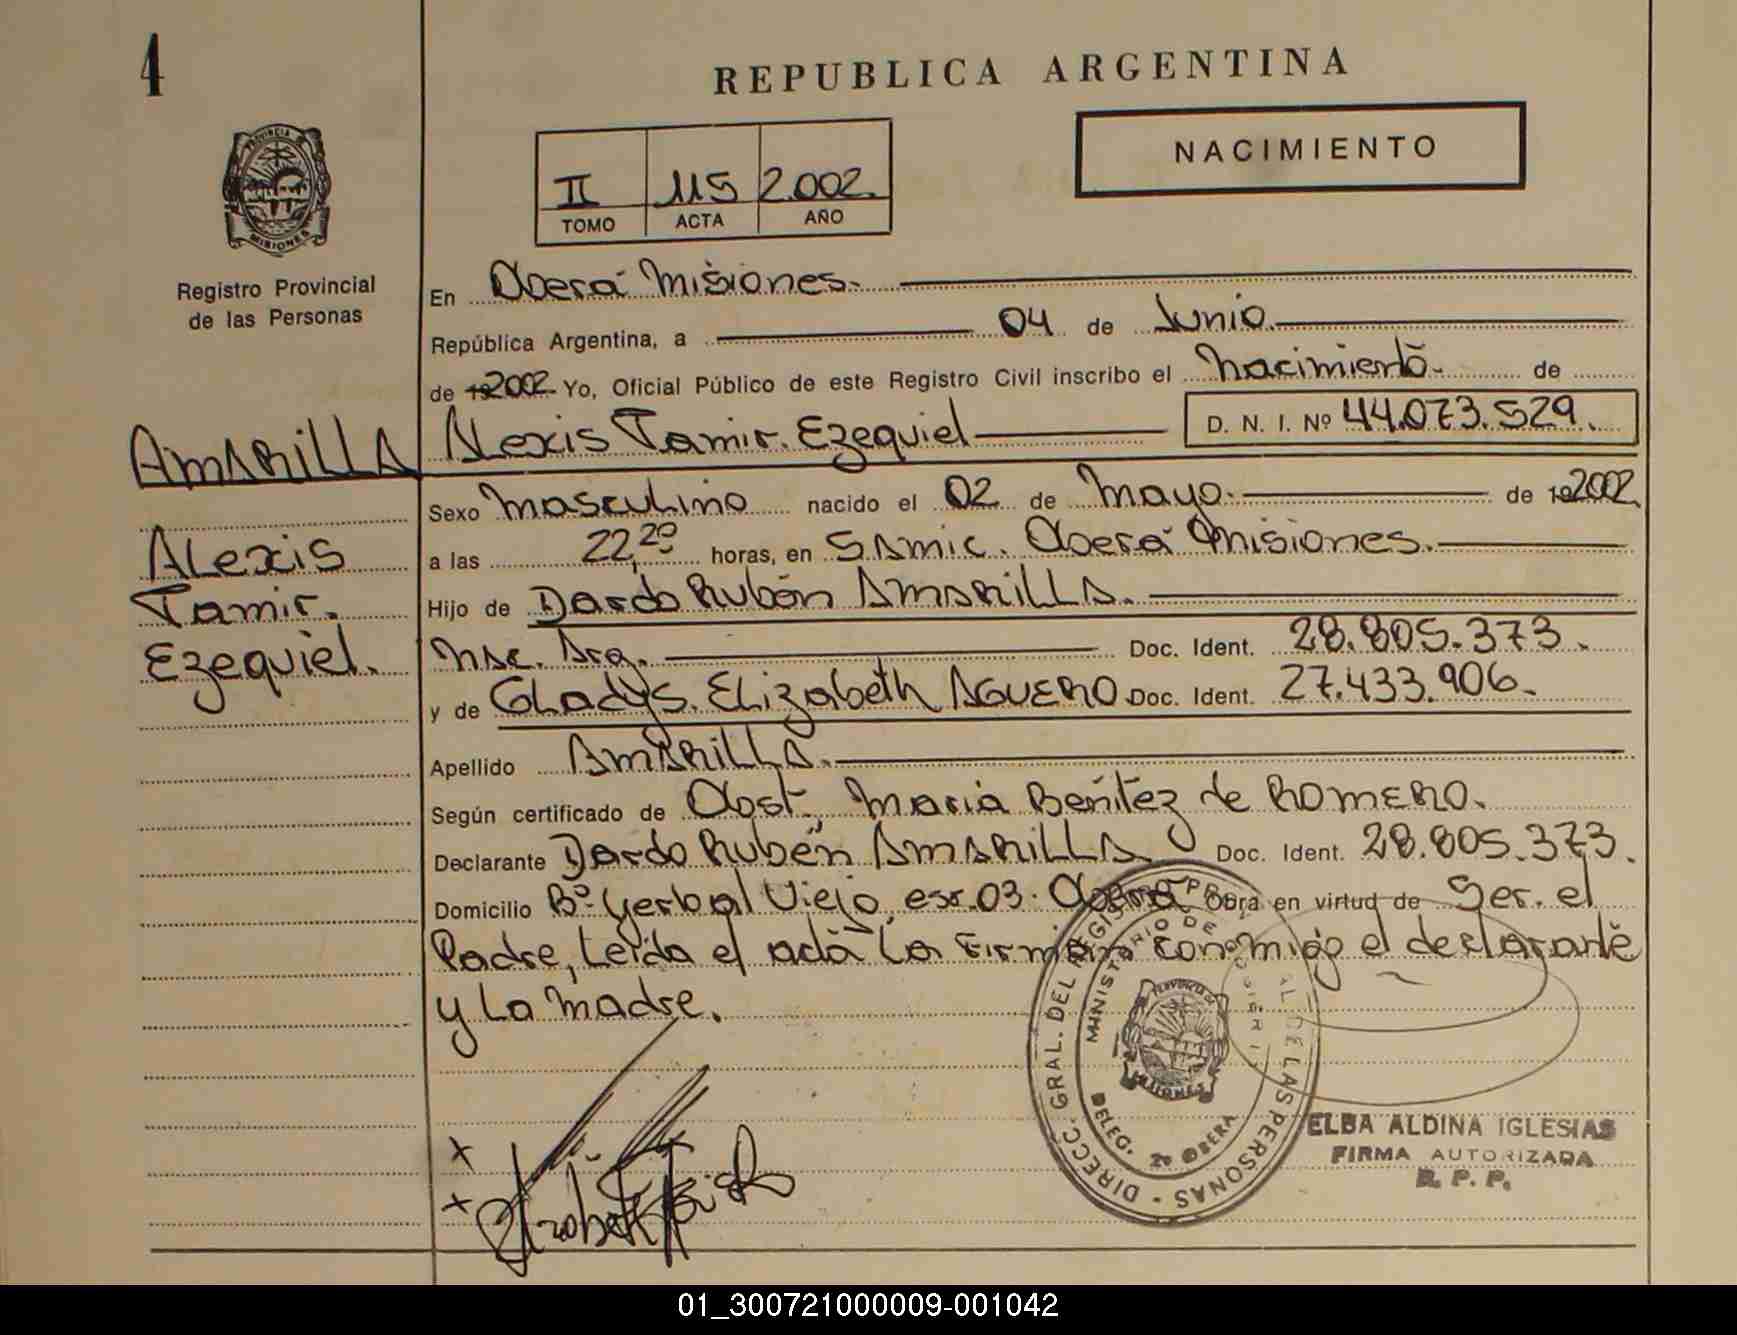 4
REPUBLICA ARGENTINA
NACIMIENTO
II 115 2.002.
TOMO ACTA AÑO
PROVINCIA DE
MISIONES
Registro Provincial
de las Personas
En Oberá Misiones.
República Argentina, a 04 de Junio.
de 192002 Yo, Oficial Público de este Registro Civil inscribo el Nacimiento. de
AMARILLA Alexis Tamir. Ezequiel D. N. I. Nº 44.073.529.
Sexo Masculino nacido el 02 de Mayo. de 192002
Alexis
a las 22,20 horas, en SAMIC. Oberá Misiones.
Tamir.
Hijo de Dardo Rubén AMARILLA.
Ezequiel.
Nac. Arg. Doc. Ident. 28.805.373.
y de Gladys. Elizabeth AGUERO Doc. Ident. 27.433.906.
Apellido AMARILLA.
Según certificado de Obst, Maria Benitez de ROMERO.
Declarante Dardo Rubén AMARILLA Doc. Ident. 28.805.373.
Domicilio Bº. Yerbal Viejo, esq. 03. Oberá Obra en virtud de Ser. el
Padre, Leida el acta La Firman conmigo el declarante
y La Madre.
DIRECC. GRAL. DEL REGIS PRO AL DE LAS PERSONAS
MINISTERIO DE
PROVINCIA DE
MISIONES
DELEG. 2º OBERA
x
x
ELBA ALDINA IGLESIAS
FIRMA AUTORIZADA
R. P. P.
01_300721000009-001042